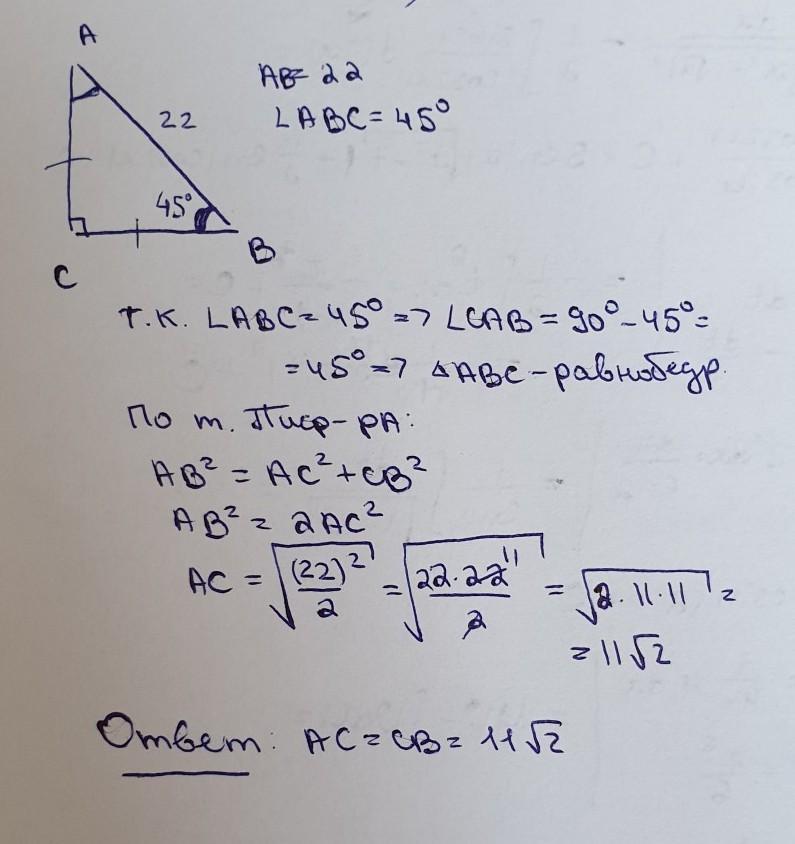 A
AB = 22
22
∠ABC = 45°
45°
B
C
т.к. ∠ABC = 45° => ∠CAB = 90° - 45° =
= 45° => △ABC - равнобедр.
По т. Пиф-рА:
AB² = AC² + CB²
AB² = 2AC²
AC = √((22)²/2) = √(22·22 11/2) = √(2·11·11) =
= 11√2
Ответ: AC = CB = 11√2